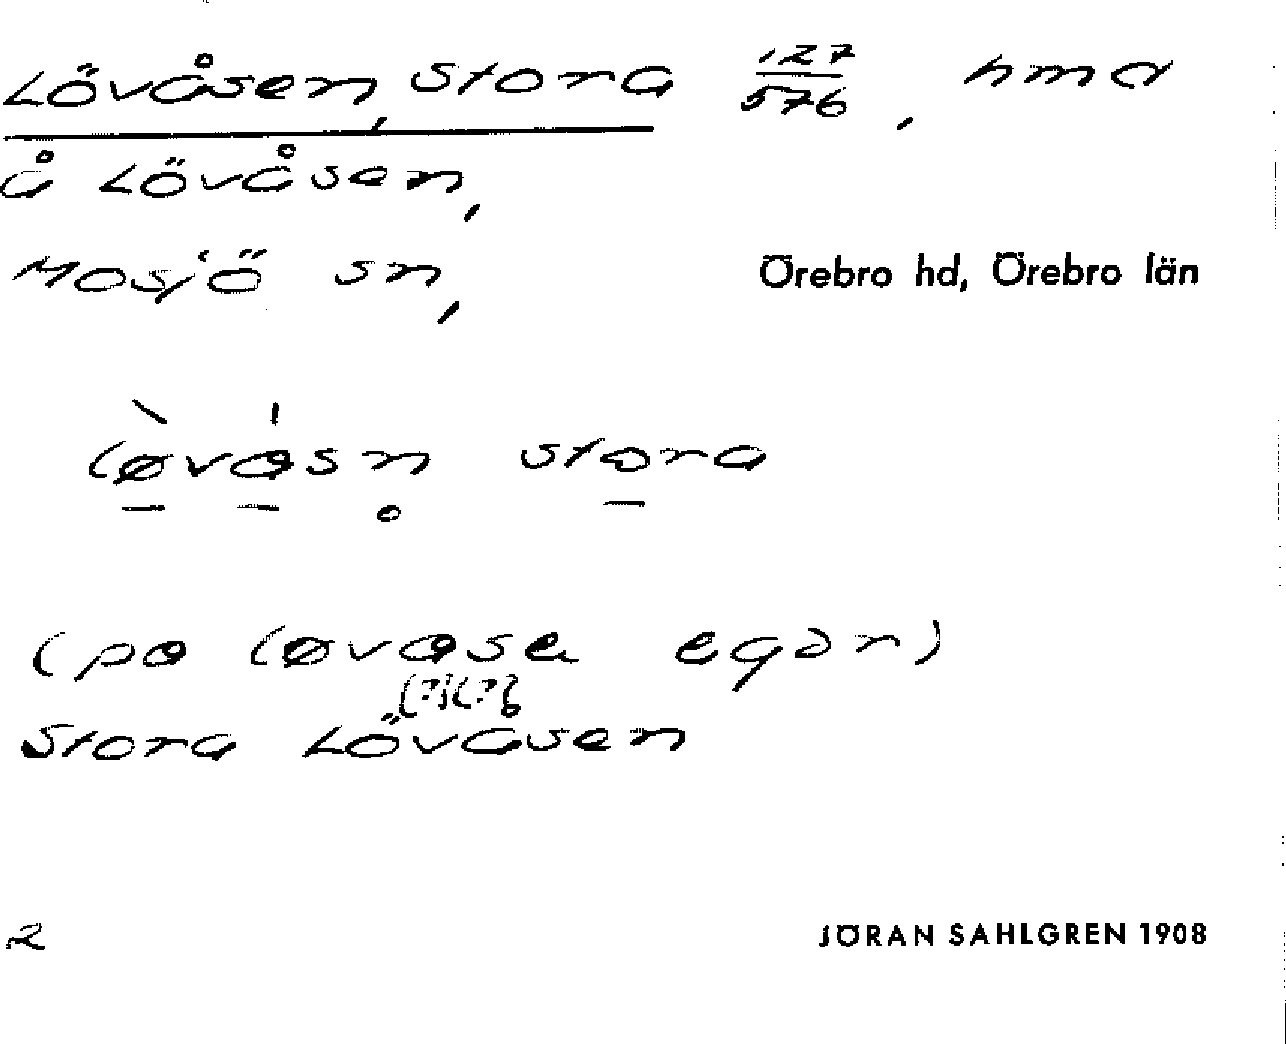 Lövåsen, Stora 127/576, hmd
å Lövåsen,
Mosjö sn, Örebro hd, Örebro län
løvåsn stora
(på løvåsa egor)
(?)(?)
Stora Lövåsen
2 JÖRAN SAHLGREN 1908